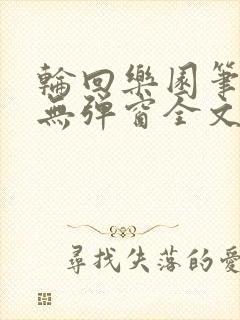 輪回樂園筆
無彈窗全文
尋找失落的愛